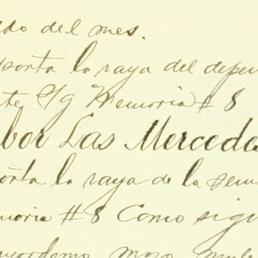 do del mes.
porta la raya del depen
te Sg Memoria #8
bor Las Mercedes
porta la raya de la sem
moria #8 Como sigu
mayordomo mozo mule